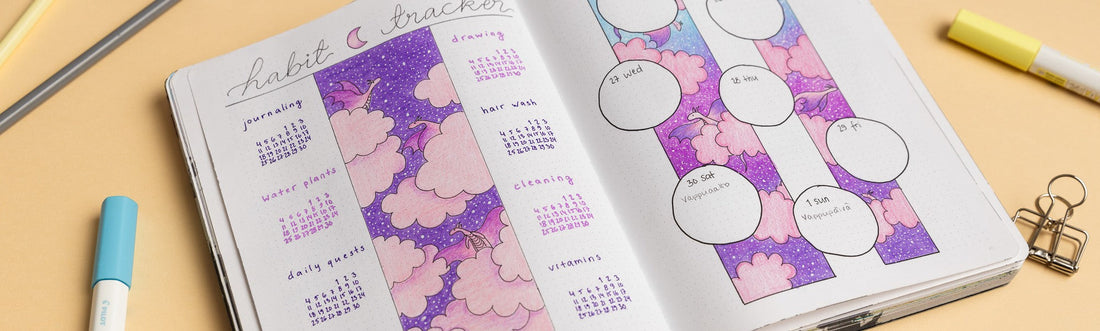 habit tracker
journaling
1 2 3
4 5 6 7 8 9 10
11 12 13 14 15 16 17
18 19 20 21 22 23 24
25 26 27 28 29 30
water plants
1 2 3
4 5 6 7 8 9 10
11 12 13 14 15 16 17
18 19 20 21 22 23 24
25 26 27 28 29 30
daily quests
1 2 3
4 5 6 7 8 9 10
11 12 13 14 15 16 17
18 19 20 21 22 23 24
25 26 27 28 29 30
drawing
1 2 3
4 5 6 7 8 9 10
11 12 13 14 15 16 17
18 19 20 21 22 23 24
25 26 27 28 29 30
hair wash
1 2 3
4 5 6 7 8 9 10
11 12 13 14 15 16 17
18 19 20 21 22 23 24
25 26 27 28 29 30
cleaning
1 2 3
4 5 6 7 8 9 10
11 12 13 14 15 16 17
18 19 20 21 22 23 24
25 26 27 28 29 30
vitamins
1 2 3
4 5 6 7 8 9 10
11 12 13 14 15 16 17
18 19 20 21 22 23 24
25 26 27 28 29 30
27 wed
28 thu
29 fri
30 sat
vappuaatto
1 sun
vappupäivä
PILOT